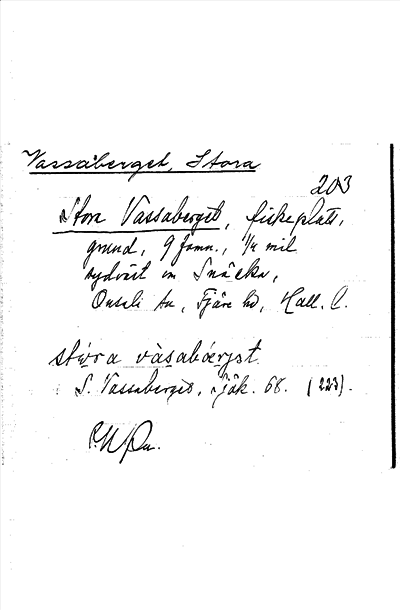 Vassaberget, Stora
203
Stora Vassaberget, fiskeplats,
grund, 9 famn., 1/4 mil
sydväst om Snäckan,
Onsala sn, Fjäre hd, Hall. l.
stóra vàsabǽrjət
S. Vassaberget, sjök. 68. (223).